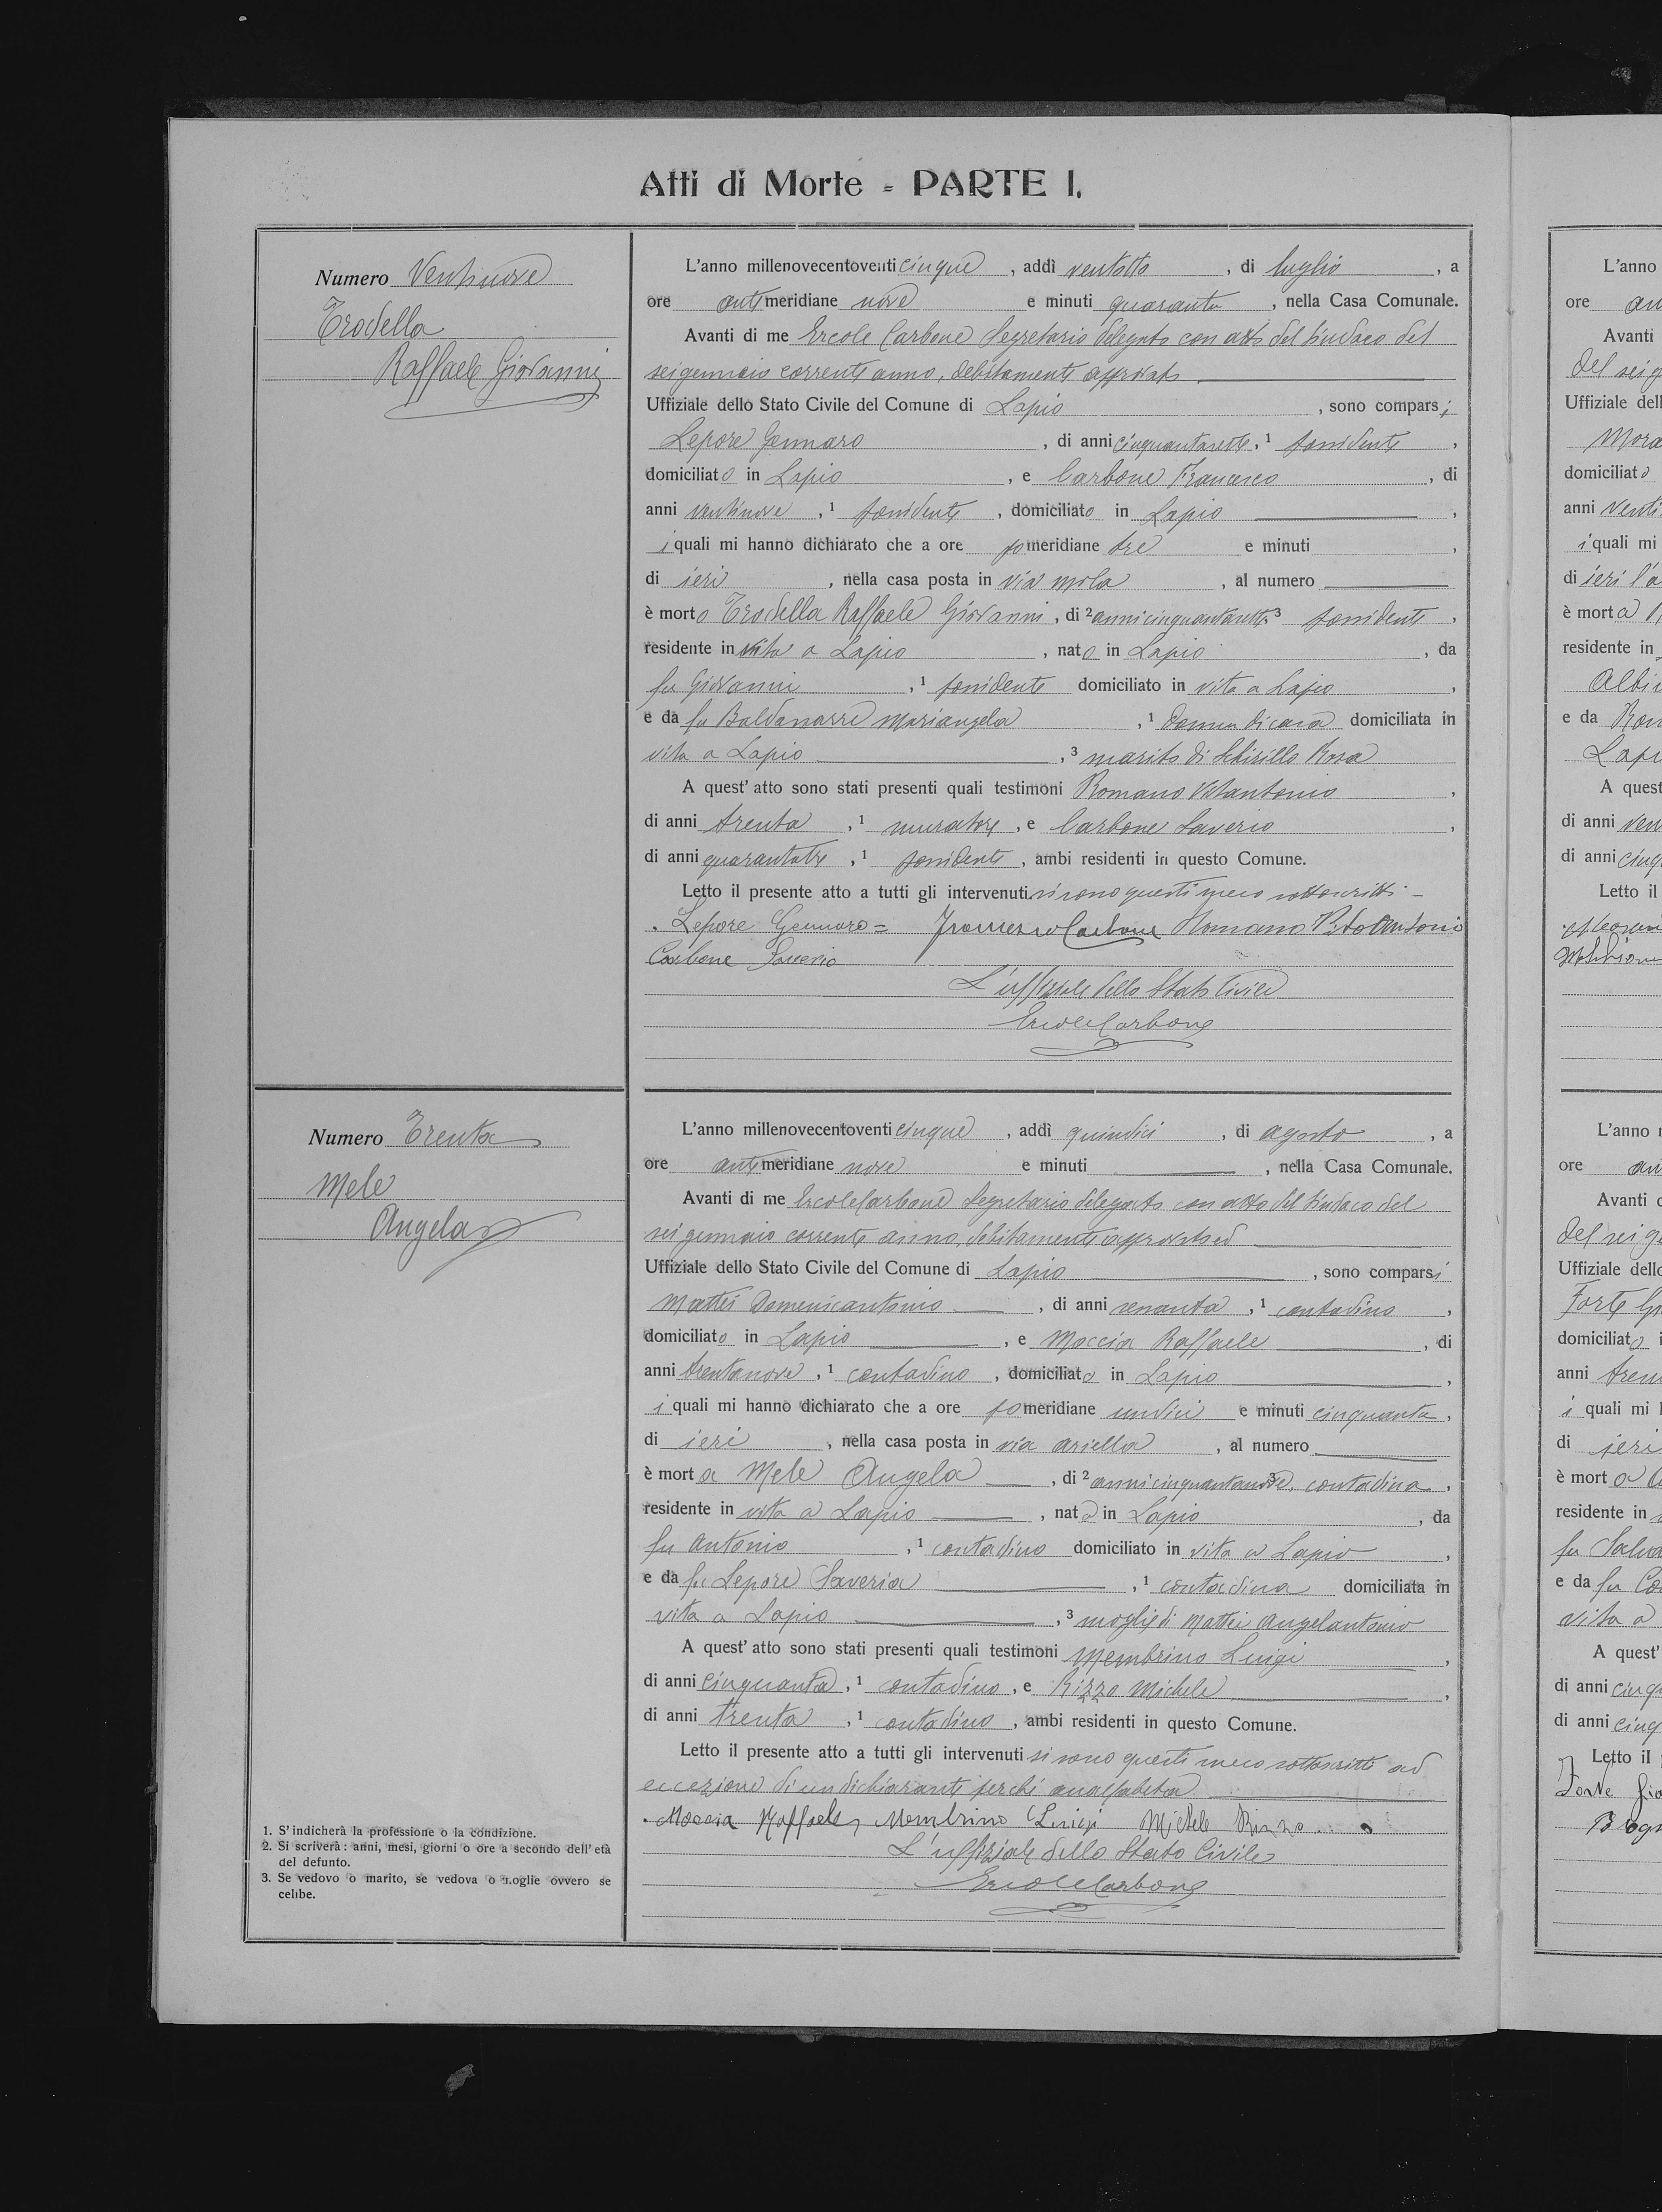 Atti di Morte - PARTE I.
Numero Ventinove
Trodella
Raffaele Giovanni
L'anno millenovecentoventicinque, addì ventotto, di luglio, a
ore antimeridiane nove e minuti quaranta, nella Casa Comunale.
Avanti di me Ercole Carbone Segretario delegato con atto del Sindaco del
sei gennaio corrente anno, debitamente approvato
Uffiziale dello Stato Civile del Comune di Lapio, sono comparsi
Lepore Gennaro, di anni cinquantasette, 1 possidente,
domiciliato in Lapio, e Carbone Francesco, di
anni ventinove, 1 possidente, domiciliato in Lapio,
i quali mi hanno dichiarato che a ore pomeridiane tre e minuti,
di ieri, nella casa posta in via mola, al numero
è morto Trodella Raffaele Giovanni, di 2 anni cinquantasette, 3 possidente,
residente in vita a Lapio, nato in Lapio, da
fu Giovanni, 1 possidente domiciliato in vita a Lapio,
e da fu Baldassarre Mariangela, 1 donna di casa domiciliata in
vita a Lapio, 3 marito di Schirillo Rosa
A quest' atto sono stati presenti quali testimoni Romano Vitantonio,
di anni trenta, 1 muratore, e Carbone Saverio,
di anni quarantatre, 1 possidente, ambi residenti in questo Comune.
Letto il presente atto a tutti gli intervenuti si sono questi meco sottoscritti -
Lepore Gennaro = Francesco Carbone Romano Vitantonio
Carbone Saverio
L'uffiziale dello Stato Civile
Ercole Carbone
Numero Trenta
Mele
Angela
L'anno millenovecentoventicinque, addì quindici, di agosto, a
ore antimeridiane nove e minuti, nella Casa Comunale.
Avanti di me Ercole Carbone Segretario delegato con atto del Sindaco del
sei gennaio corrente anno, debitamente approvato ed
Uffiziale dello Stato Civile del Comune di Lapio, sono comparsi
Mattei Domenicantonio, di anni sessanta, 1 contadino,
domiciliato in Lapio, e Moccia Raffaele, di
anni trentanove, 1 contadino, domiciliato in Lapio,
i quali mi hanno dichiarato che a ore pomeridiane undici e minuti cinquanta,
di ieri, nella casa posta in via Ariella, al numero
è morta Mele Angela, di 2 anni cinquantanove, 3 contadina,
residente in vita a Lapio, nata in Lapio, da
fu Antonio, 1 contadino domiciliato in vita a Lapio,
e da fu Lepore Saveria, 1 contadina domiciliata in
vita a Lapio, 3 moglie di Mattei Angelantonio
A quest' atto sono stati presenti quali testimoni Membrino Luigi,
di anni cinquanta, 1 contadino, e Rizzo Michele,
di anni trenta, 1 contadino, ambi residenti in questo Comune.
Letto il presente atto a tutti gli intervenuti si sono questi meco sottoscritti ad
eccezione di un dichiarante perchè analfabeta
Moccia Raffaele Membrino Luigi Michele Rizzo
L'uffiziale dello Stato Civile
Ercole Carbone
1. S'indicherà la professione o la condizione.
2. Si scriverà: anni, mesi, giorni o ore a secondo dell' età
del defunto.
3. Se vedovo o marito, se vedova o moglie ovvero se
celibe.
L'anno
ore
Avanti
del sei
Uffiziale dell
domiciliato
anni venti
i quali mi
di ieri
è morta
residente in
e da
A quest
di anni
di anni
Letto il
L'anno
ore
Avanti
del sei
Uffiziale dello
Forte
domiciliato
anni
i quali mi
di ieri
è morta
residente in
fu
e da fu
vita a
A quest'
di anni
di anni
Letto il
Forte